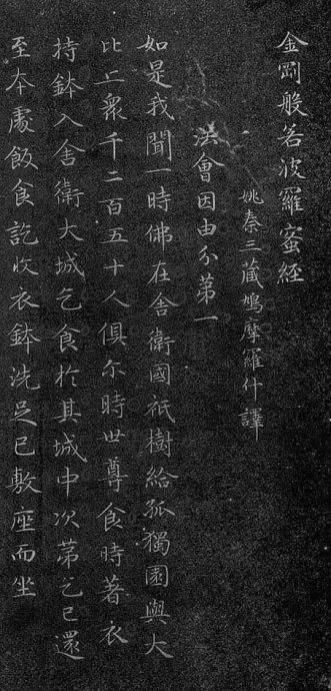 金剛般若波羅蜜經
姚秦三藏鳩摩羅什譯
法會因由分第一
如是我聞一時佛在舍衛國祇樹給孤獨園與大
比丘衆千二百五十人俱尔時世尊食時著衣
持鉢入舍衛大城乞食於其城中次苐乞已還
至本處飯食訖收衣鉢洗足已敷座而坐